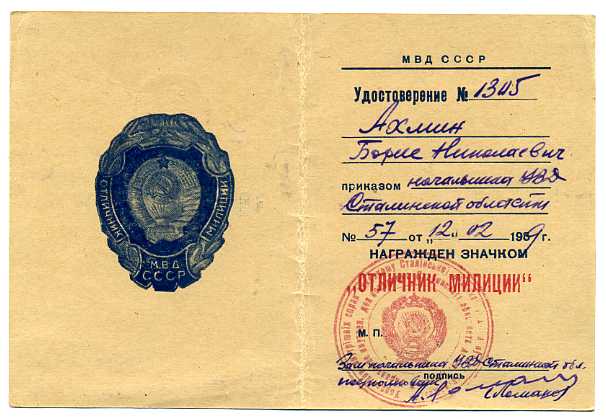 ОТЛИЧНИК МИЛИЦИИ
М.В.Д.
СССР
МВД СССР
Удостоверение № 1305
Ахмин
Борис Николаевич
приказом начальника УВД
Сталинской области
№ 57 от „12" 02 1959 г.
НАГРАЖДЕН ЗНАЧКОМ
"ОТЛИЧНИК МИЛИЦИИ"
М. П.
Зам начальника УВД Сталинской обл.
подпись